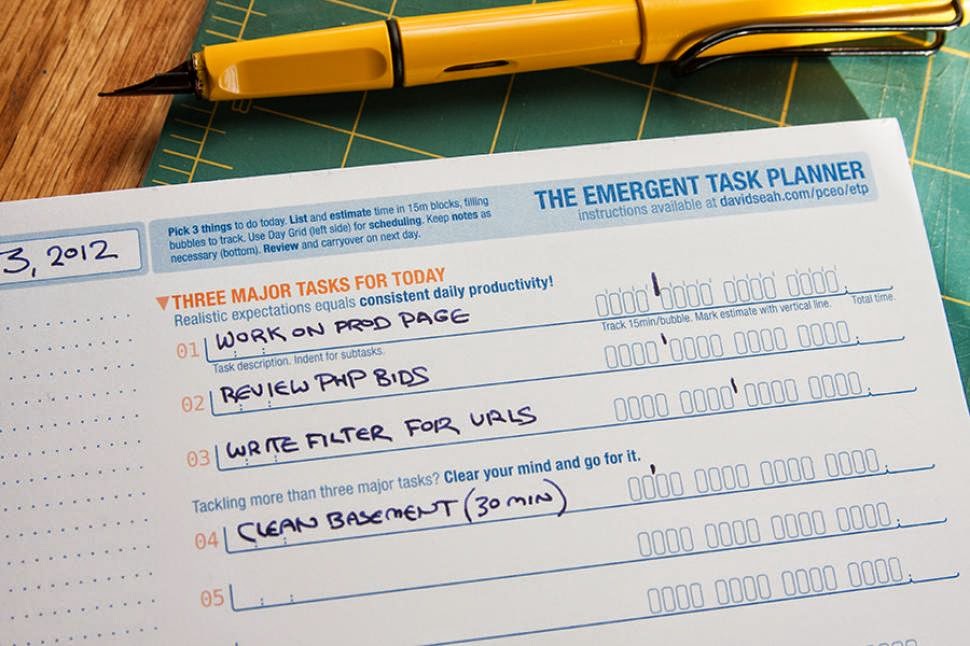 3, 2012
Pick 3 things to do today. List and estimate time in 15m blocks, filling
bubbles to track. Use Day Grid (left side) for scheduling. Keep notes as
necessary (bottom). Review and carryover on next day.
THE EMERGENT TASK PLANNER
instructions available at davidseah.com/pceo/etp
▼THREE MAJOR TASKS FOR TODAY
Realistic expectations equals consistent daily productivity!
01 WORK ON PROD PAGE
Task description. Indent for subtasks.
Track 15min/bubble. Mark estimate with vertical line. Total time.
02 REVIEW PHP BIDS
03 WRITE FILTER FOR URLS
Tackling more than three major tasks? Clear your mind and go for it.
04 CLEAN BASEMENT (30 MIN)
05